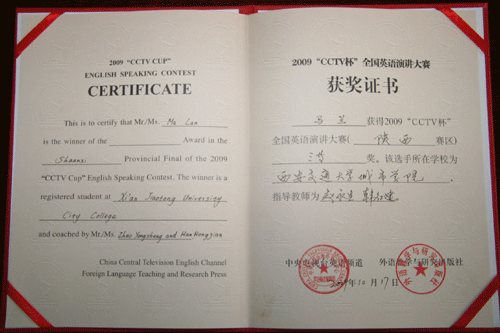 2009 "CCTV CUP"
ENGLISH SPEAKING CONTEST
CERTIFICATE
This is to certify that Mr./Ms. Ma Lan
is the winner of the Award in the
Shaanxi Provincial Final of the 2009
"CCTV Cup" English Speaking Contest. The winner is a
registered student at Xi'an Jiaotong University
City College
and coached by Mr./Ms. Zhao Yongsheng and Han Hongjian
China Central Television English Channel
Foreign Language Teaching and Research Press
2009 "CCTV杯" 全国英语演讲大赛
获奖证书
马兰 获得2009 "CCTV杯"
全国英语演讲大赛( 陕西 赛区)
奖。该选手所在学校为
西安交通大学城市学院,
指导教师为
中央电视台英语频道 外语教学与研究出版社
2009年10月17日